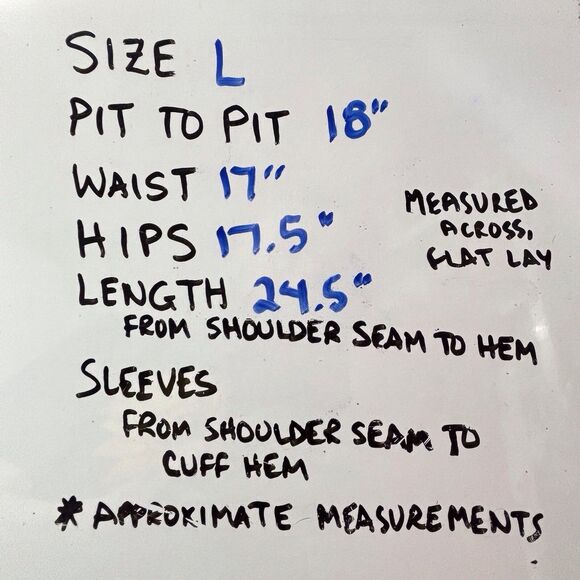 SIZE L
PIT TO PIT 18"
WAIST 17"
HIPS 17.5"
MEASURED
ACROSS,
FLAT LAY
LENGTH 24.5"
FROM SHOULDER SEAM TO HEM
SLEEVES
FROM SHOULDER SEAM TO
CUFF HEM
* APPROXIMATE MEASUREMENTS